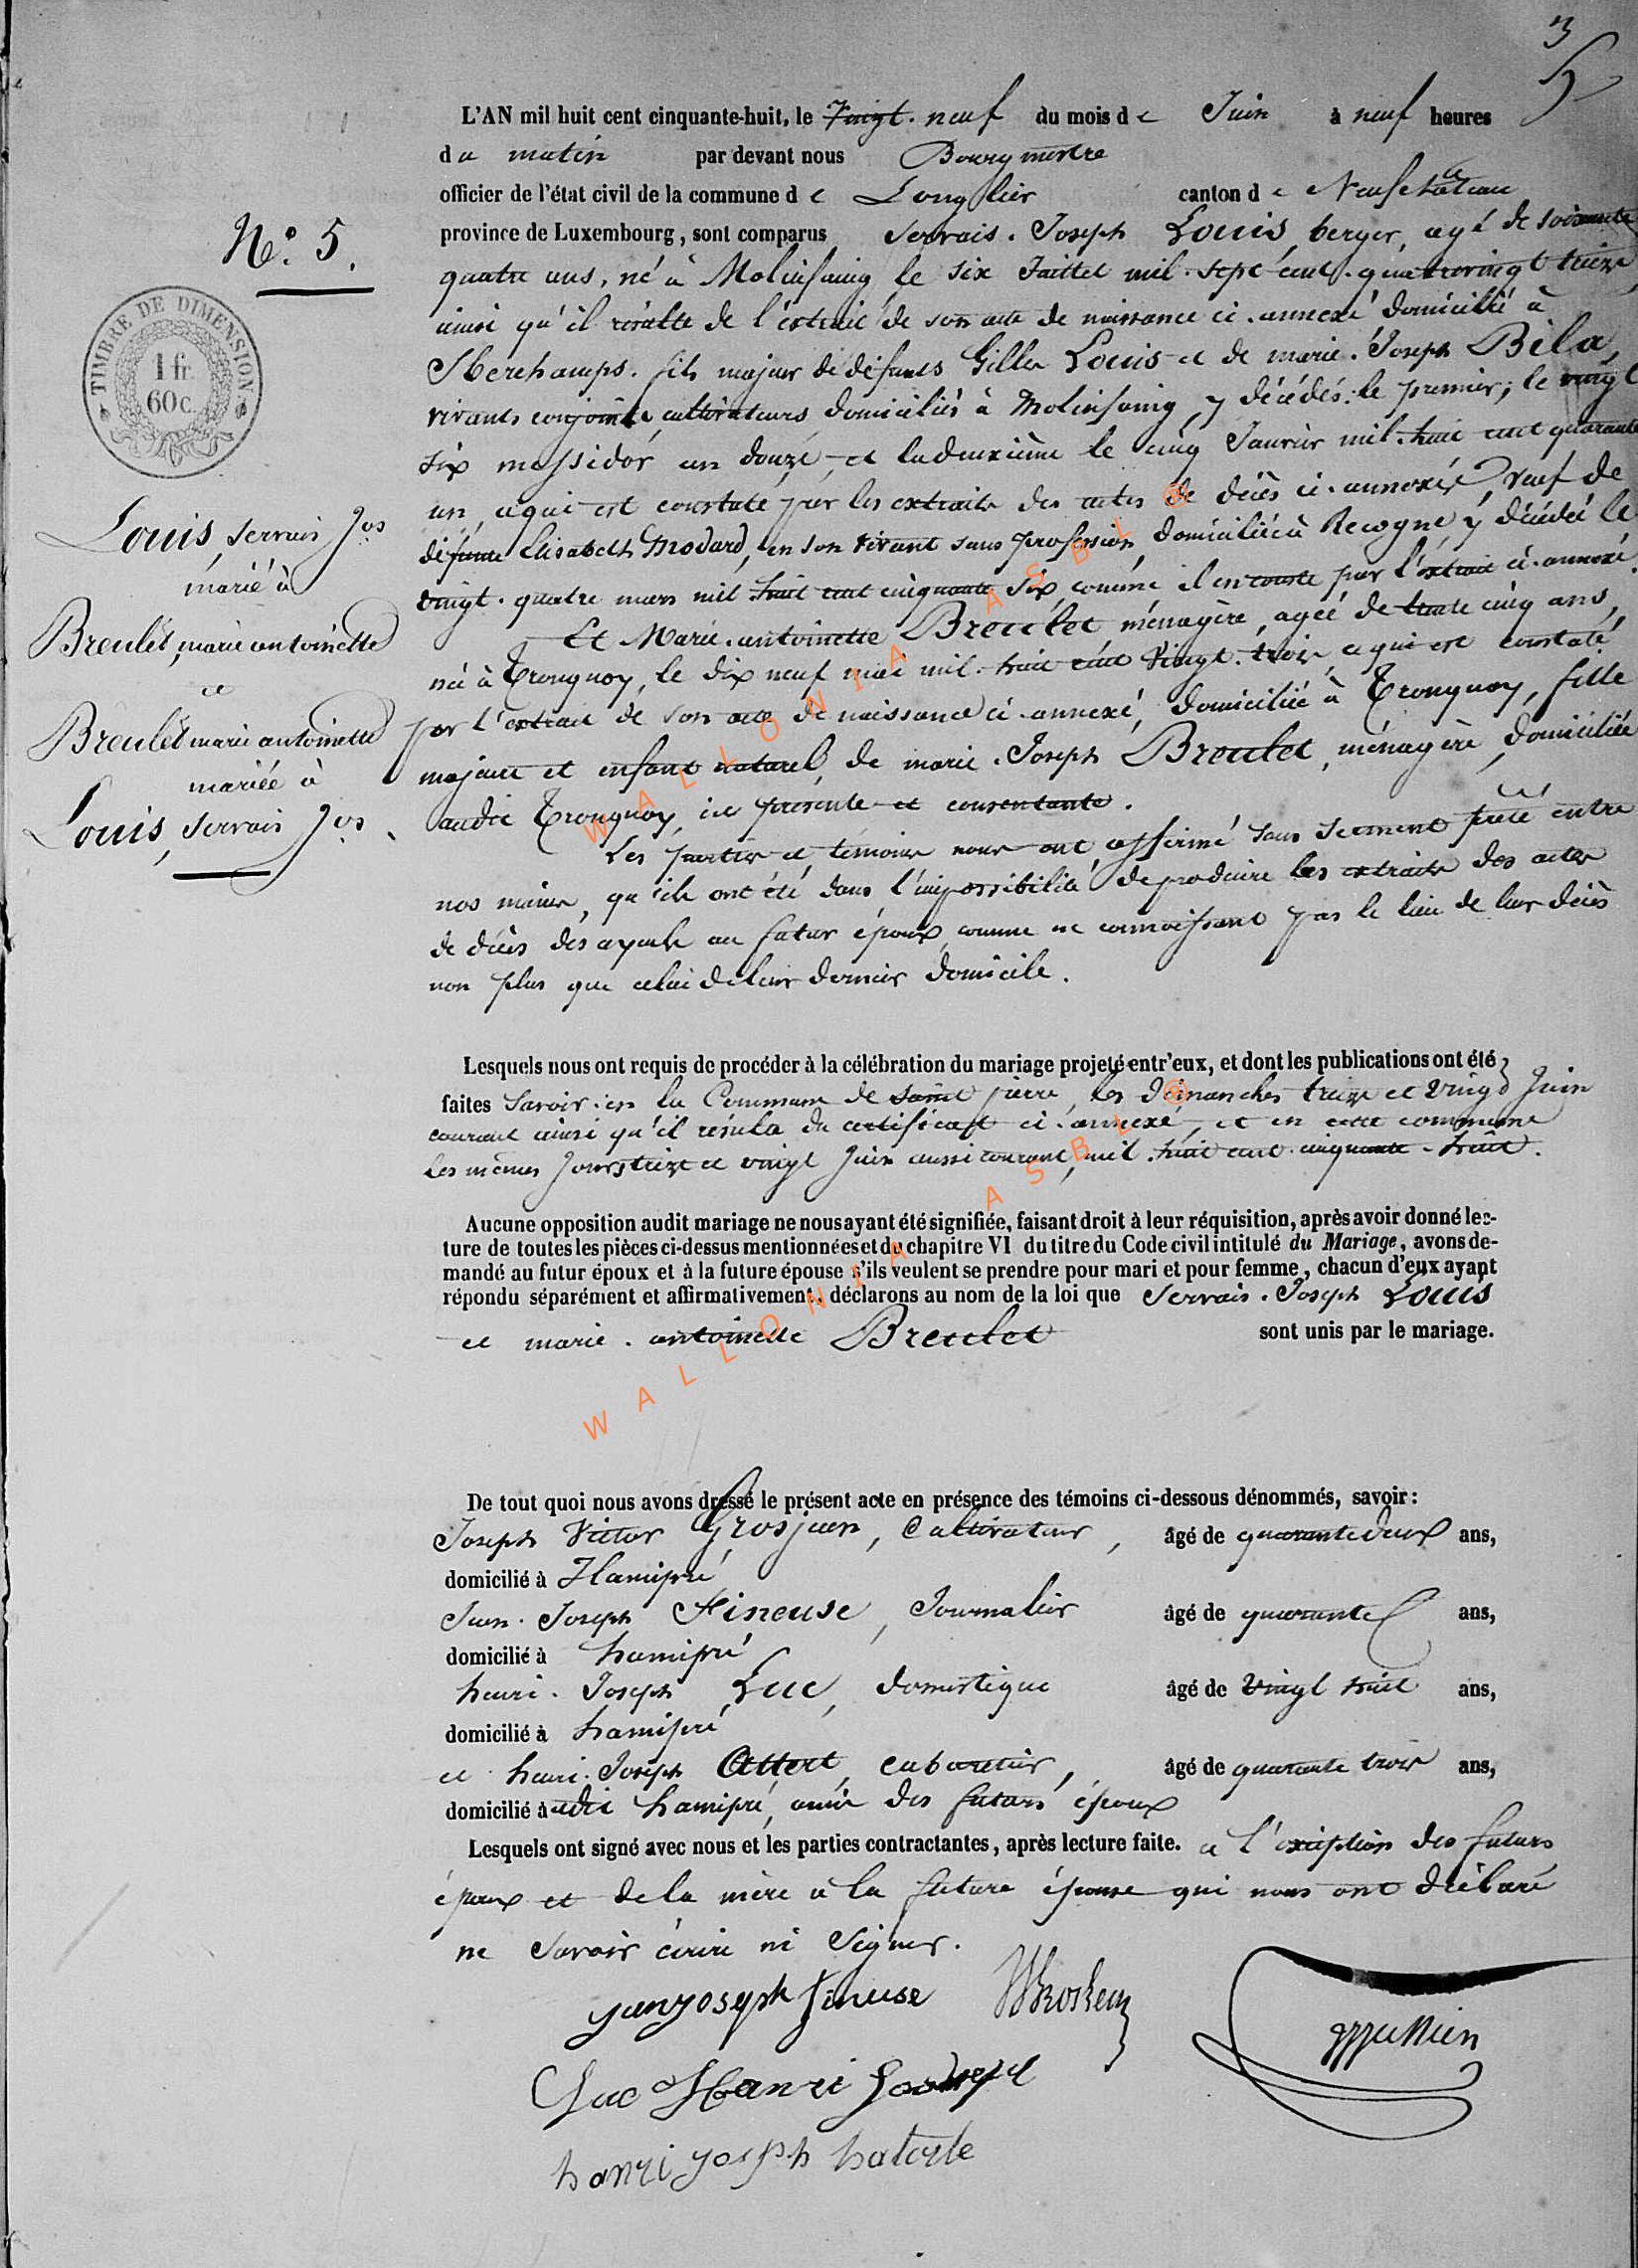 3
5
L'AN mil huit cent cinquante-huit, le Vingt-neuf du mois de Juin à neuf heures
du matin par devant nous Bourgmestre
officier de l'état civil de la commune de Longlier canton de Neufchâteau
province de Luxembourg, sont comparus Servais-Joseph Louis, berger, agé de soixante
N° 5.
quatre ans, né à Molinfaing le six Juillet mil-sept-cent-quatrevingt treize
ainsi qu'il résulte de l'extrait de son acte de naissance ci-annexé domicilié à
TIMBRE DE DIMENSION
1 fr.
60 c.
fils majeur de défunts Gilles Louis et de marie-Joseph Bila,
vivants conjoints cultivateurs domiciliés à Molinfaing, y décédés: le premier, le vingt
six messidor an douze, et la deuxième le cinq Janvier mil-huit cent quarante
un, ce qui est constaté par les extraits des actes de décès ci-annexés, veuf de
défunte Elisabeth Modard, en son vivant sans profession, domiciliée à Recogne, y décédée le
vingt-quatre mars mil-huit cent cinquante six comme il en conste par l'extrait ci-annexé.
Louis, servais Jos
marié à
Breulet, marie antoinette
et
Breulet marie antoinette
mariée à
Louis, servais Jos.
Et Marie-antoinette Breulet ménagère, agée de trente cinq ans,
née à Tronquoy, le dix neuf mai mil-huit cent Vingt-trois, ce qui est constaté
par l'extrait de son acte de naissance ci-annexé, domiciliée à Tronquoy, fille
majeure et enfant naturel, de marie-Joseph Breulet, ménagère, domiciliée
audit Tronquoy, ici présente et consentante.
Les parties et témoins nous ont affirmé sous serment prêté entre
nos mains, qu'ils ont été dans l'impossibilité de produire les extraits des actes
de décès des ayeuls au futur époux, comme ne connaissant pas le lieu de leur décès
non plus que celui de leur dernier domicile.
Lesquels nous ont requis de procéder à la célébration du mariage projeté entr'eux, et dont les publications ont été
faites savoir: en la Commune de saint pierre, les Dimanches treize et vingt Juin
courant ainsi qu'il résulte du certificat ci-annexé, et en cette commune
les mêmes Jours treize et vingt Juin aussi courant, mil-huit cent-cinquante-huit.
Aucune opposition audit mariage ne nous ayant été signifiée, faisant droit à leur réquisition, après avoir donné lec-
ture de toutes les pièces ci-dessus mentionnées et du chapitre VI du titre du Code civil intitulé du Mariage, avons de-
mandé au futur époux et à la future épouse s'ils veulent se prendre pour mari et pour femme, chacun d'eux ayant
répondu séparément et affirmativement, déclarons au nom de la loi que Servais-Joseph Louis
et marie-antoinette Breulet sont unis par le mariage.
WALLONIA ASBL ®
WALLONIA ASBL ®
De tout quoi nous avons dressé le présent acte en présence des témoins ci-dessous dénommés, savoir:
Joseph Victor Grosjean, Cultivateur, âgé de quarante deux ans,
domicilié à Hamipré
Jean-Joseph Fineuse, Journalier âgé de quarante ans,
domicilié à hamipré
henri-Joseph Luc, domestique âgé de vingt huit ans,
domicilié à hamipré
et henri-Joseph cabaretier, âgé de quarante trois ans,
domicilié audit hamipré, amis des futurs époux
Lesquels ont signé avec nous et les parties contractantes, après lecture faite. a l'exception des futurs
époux et de la mère à la future épouse qui nous ont déclaré
ne savoir écrire ni signer.
jean joseph fineuse
Luc Hanri Joseph
hanri joseph